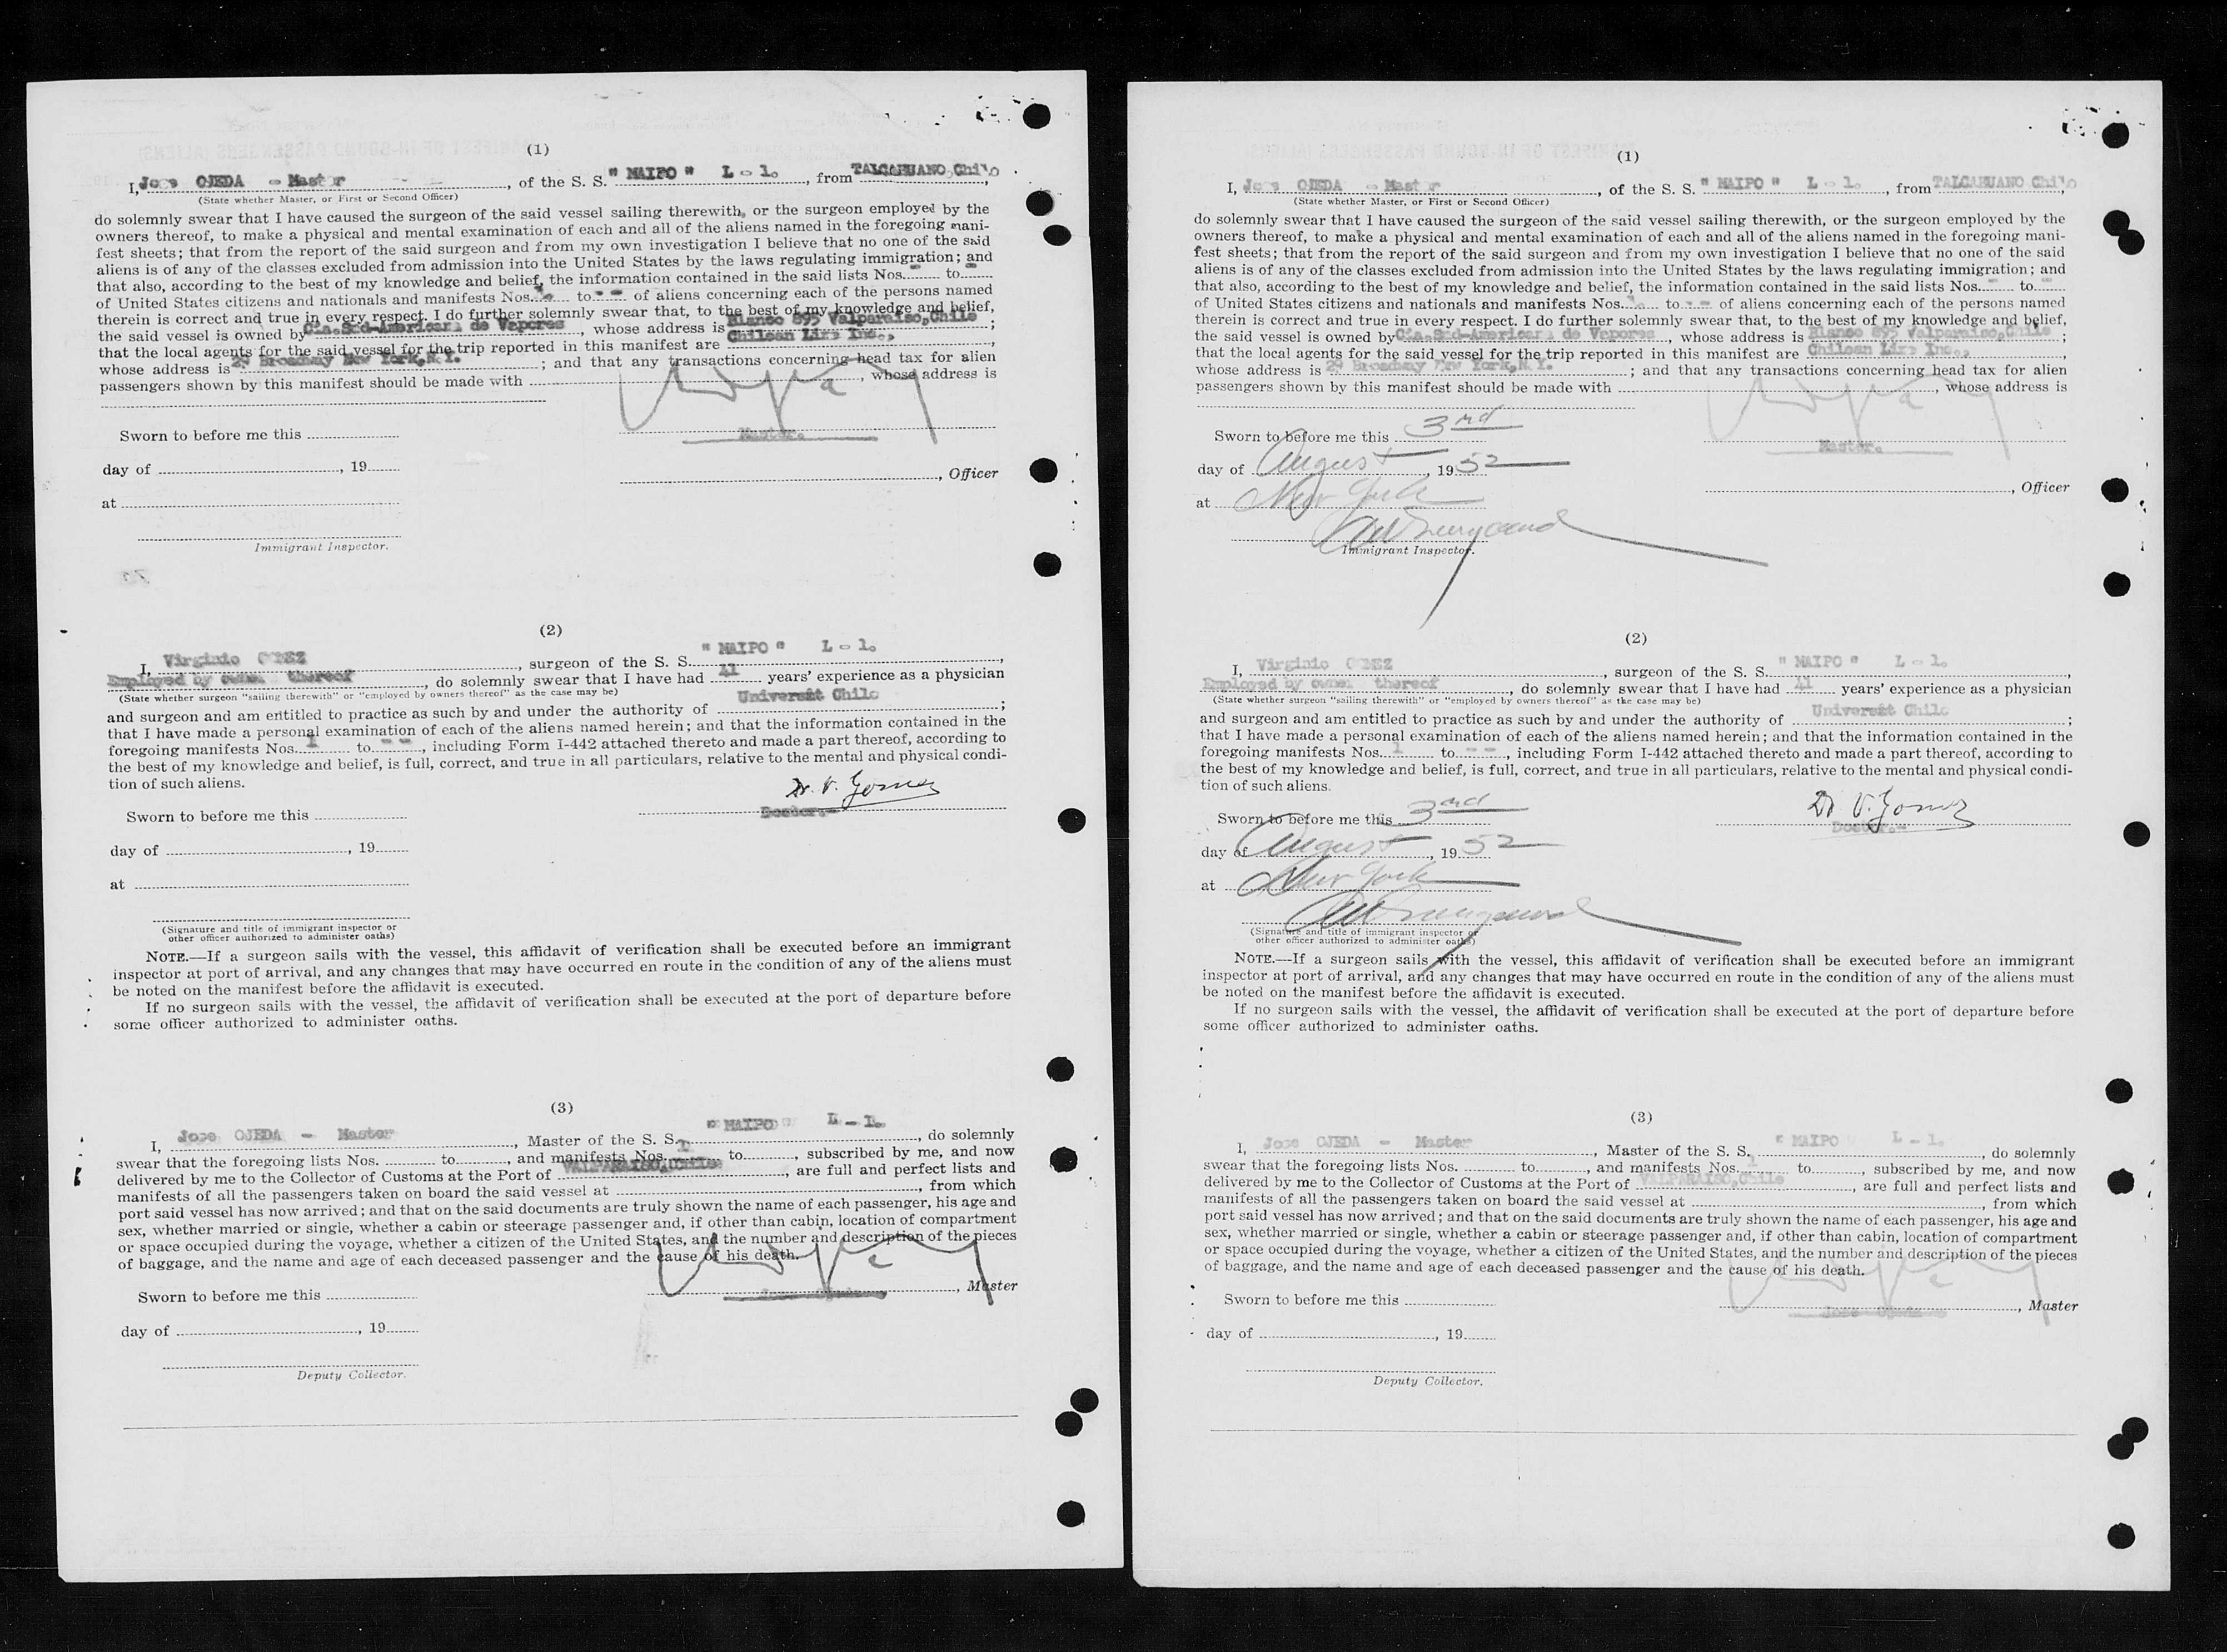 (1)
I, Jose OJEDA - Master, of the S. S. " MAIPO " L - 1., from TALCAHUANO Chile,
(State whether Master, or First or Second Officer)
do solemnly swear that I have caused the surgeon of the said vessel sailing therewith, or the surgeon employed by the
owners thereof, to make a physical and mental examination of each and all of the aliens named in the foregoing mani-
fest sheets; that from the report of the said surgeon and from my own investigation I believe that no one of the said
aliens is of any of the classes excluded from admission into the United States by the laws regulating immigration; and
that also, according to the best of my knowledge and belief, the information contained in the said lists Nos. - to -
of United States citizens and nationals and manifests Nos. to - - of aliens concerning each of the persons named
therein is correct and true in every respect. I do further solemnly swear that, to the best of my knowledge and belief,
the said vessel is owned by Cia. Sud-Americana de Vapores, whose address is Blanco 895 Valparaiso, Chile;
that the local agents for the said vessel for the trip reported in this manifest are Chilean Line Inc.,
whose address is 29 Broadway New York, N.Y.; and that any transactions concerning head tax for alien
passengers shown by this manifest should be made with, whose address is
Sworn to before me this
Master.
day of, 19
, Officer
at
Immigrant Inspector.
(2)
I, Virginio GOMEZ, surgeon of the S. S. " MAIPO " L - 1.,
Employed by owner thereof, do solemnly swear that I have had 41 years' experience as a physician
(State whether surgeon "sailing therewith" or "employed by owners thereof" as the case may be)
and surgeon and am entitled to practice as such by and under the authority of Universit Chile;
that I have made a personal examination of each of the aliens named herein; and that the information contained in the
foregoing manifests Nos. 1 to - -, including Form I-442 attached thereto and made a part thereof, according to
the best of my knowledge and belief, is full, correct, and true in all particulars, relative to the mental and physical condi-
tion of such aliens.
Dr. V. Gomez
Sworn to before me this
Doctor.-
day of, 19
at
(Signature and title of immigrant inspector or
other officer authorized to administer oaths)
NOTE.—If a surgeon sails with the vessel, this affidavit of verification shall be executed before an immigrant
inspector at port of arrival, and any changes that may have occurred en route in the condition of any of the aliens must
be noted on the manifest before the affidavit is executed.
If no surgeon sails with the vessel, the affidavit of verification shall be executed at the port of departure before
some officer authorized to administer oaths.
(3)
I, Jose OJEDA - Master, Master of the S. S. " MAIPO " L - 1., do solemnly
swear that the foregoing lists Nos. to, and manifests Nos. 1 to, subscribed by me, and now
delivered by me to the Collector of Customs at the Port of VALPARAISO, Chile, are full and perfect lists and
manifests of all the passengers taken on board the said vessel at, from which
port said vessel has now arrived; and that on the said documents are truly shown the name of each passenger, his age and
sex, whether married or single, whether a cabin or steerage passenger and, if other than cabin, location of compartment
or space occupied during the voyage, whether a citizen of the United States, and the number and description of the pieces
of baggage, and the name and age of each deceased passenger and the cause of his death.
Sworn to before me this
Jose Ojeda, Master
day of, 19
Deputy Collector.
(1)
I, Jose OJEDA - Master, of the S. S. " MAIPO " L - 1., from TALCAHUANO Chile,
(State whether Master, or First or Second Officer)
do solemnly swear that I have caused the surgeon of the said vessel sailing therewith, or the surgeon employed by the
owners thereof, to make a physical and mental examination of each and all of the aliens named in the foregoing mani-
fest sheets; that from the report of the said surgeon and from my own investigation I believe that no one of the said
aliens is of any of the classes excluded from admission into the United States by the laws regulating immigration; and
that also, according to the best of my knowledge and belief, the information contained in the said lists Nos. - to -
of United States citizens and nationals and manifests Nos. to - - of aliens concerning each of the persons named
therein is correct and true in every respect. I do further solemnly swear that, to the best of my knowledge and belief,
the said vessel is owned by Cia. Sud-Americana de Vapores, whose address is Blanco 895 Valparaiso, Chile;
that the local agents for the said vessel for the trip reported in this manifest are Chilean Line Inc.,
whose address is 29 Broadway New York, N.Y.; and that any transactions concerning head tax for alien
passengers shown by this manifest should be made with, whose address is
Sworn to before me this 3rd
Master.
day of August, 1952
, Officer
at New York
Immigrant Inspector.
(2)
I, Virginio GOMEZ, surgeon of the S. S. " MAIPO " L - 1.,
Employed by owner thereof, do solemnly swear that I have had 41 years' experience as a physician
(State whether surgeon "sailing therewith" or "employed by owners thereof" as the case may be)
and surgeon and am entitled to practice as such by and under the authority of Universit Chile;
that I have made a personal examination of each of the aliens named herein; and that the information contained in the
foregoing manifests Nos. 1 to - -, including Form I-442 attached thereto and made a part thereof, according to
the best of my knowledge and belief, is full, correct, and true in all particulars, relative to the mental and physical condi-
tion of such aliens.
Dr V. Gomez
Sworn to before me this 3rd
Doctor.-
day of August, 1952
at New York
(Signature and title of immigrant inspector or
other officer authorized to administer oaths)
NOTE.—If a surgeon sails with the vessel, this affidavit of verification shall be executed before an immigrant
inspector at port of arrival, and any changes that may have occurred en route in the condition of any of the aliens must
be noted on the manifest before the affidavit is executed.
If no surgeon sails with the vessel, the affidavit of verification shall be executed at the port of departure before
some officer authorized to administer oaths.
(3)
I, Jose OJEDA - Master, Master of the S. S. " MAIPO L - 1., do solemnly
swear that the foregoing lists Nos. to, and manifests Nos. 1 to, subscribed by me, and now
delivered by me to the Collector of Customs at the Port of VALPARAISO, Chile, are full and perfect lists and
manifests of all the passengers taken on board the said vessel at, from which
port said vessel has now arrived; and that on the said documents are truly shown the name of each passenger, his age and
sex, whether married or single, whether a cabin or steerage passenger and, if other than cabin, location of compartment
or space occupied during the voyage, whether a citizen of the United States, and the number and description of the pieces
of baggage, and the name and age of each deceased passenger and the cause of his death.
Sworn to before me this
Jose Ojeda, Master
day of, 19
Deputy Collector.